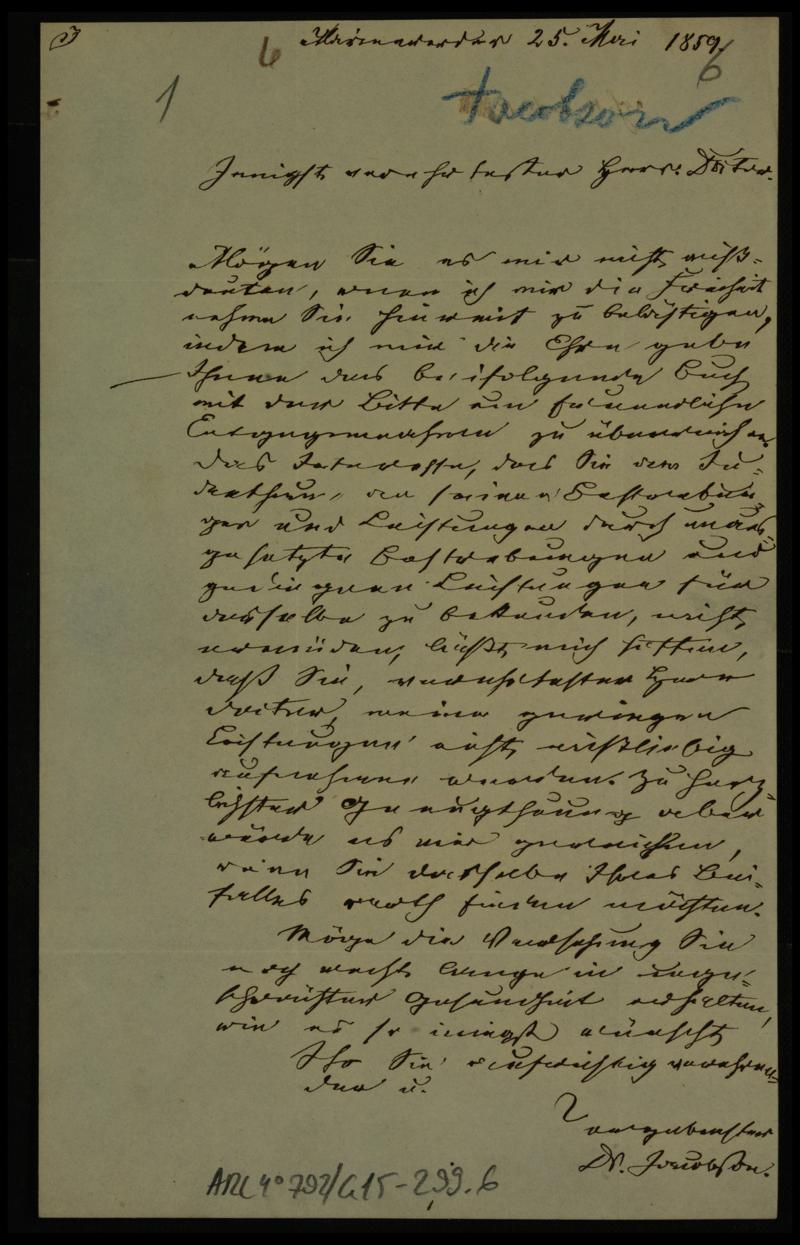 Marienwerder 25. Mai 1859.
6
6
1
Jacobson
Innigst verehrtester Herr Doctor.
Mögen Sie es mir nicht miß=
deuten, wenn ich mir die Freiheit
nehme Sie hiermit zu belästigen,
indem ich mir die Ehre gebe
Ihnen das beifolgende Buch
mit der Bitte um freundliche
Entgegennahme zu überreichen.
Das Interesse, das Sie dem Ju=
denthum, an seinen Bestrebun=
gen und Leistungen durch unaus=
gesetzte Bestrebungen und
gediegene Leistungen für
dasselbe zu bekunden, nicht
ermüden, läßt mich hoffen,
daß Sie, verehrtester Herr
Doctor, meine geringen
Leistungen nicht mißliebig
aufnehmen werden. Zu herz=
lichster Genugthuung aber
würde es mir gereichen,
wenn Sie dasselbe Ihres Bei=
falles werth finden möchten.
Möge die Vorsehung Sie
noch recht lange in unge=
schwächter Gesundheit erhalten,
wie es so innigst wünscht
Ihr Sie aufrichtig verehren=
der u.
ergebenster
Dr. Jacobson.
ARC 4° 792/G15-299.6